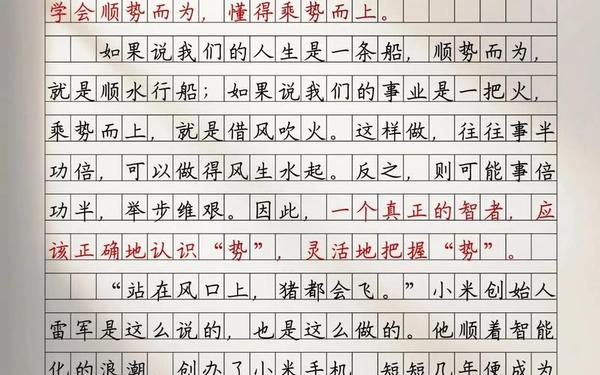 学会顺势而为，懂得乘势而上。
如果说我们的人生是一条船，顺势而为，
就是顺水行船；如果说我们的事业是一把火，
乘势而上，就是借风吹火。这样做，往往事半
功倍，可以做得风生水起。反之，则可能事倍
功半，举步维艰。因此，一个真正的智者，应
该正确地认识“势”，灵活地把握“势”。
“站在风口上，猪都会飞。”小米创始人
雷军是这么说的，也是这么做的。他顺着智能
化的浪潮，创办了小米手机，短短几年便成为